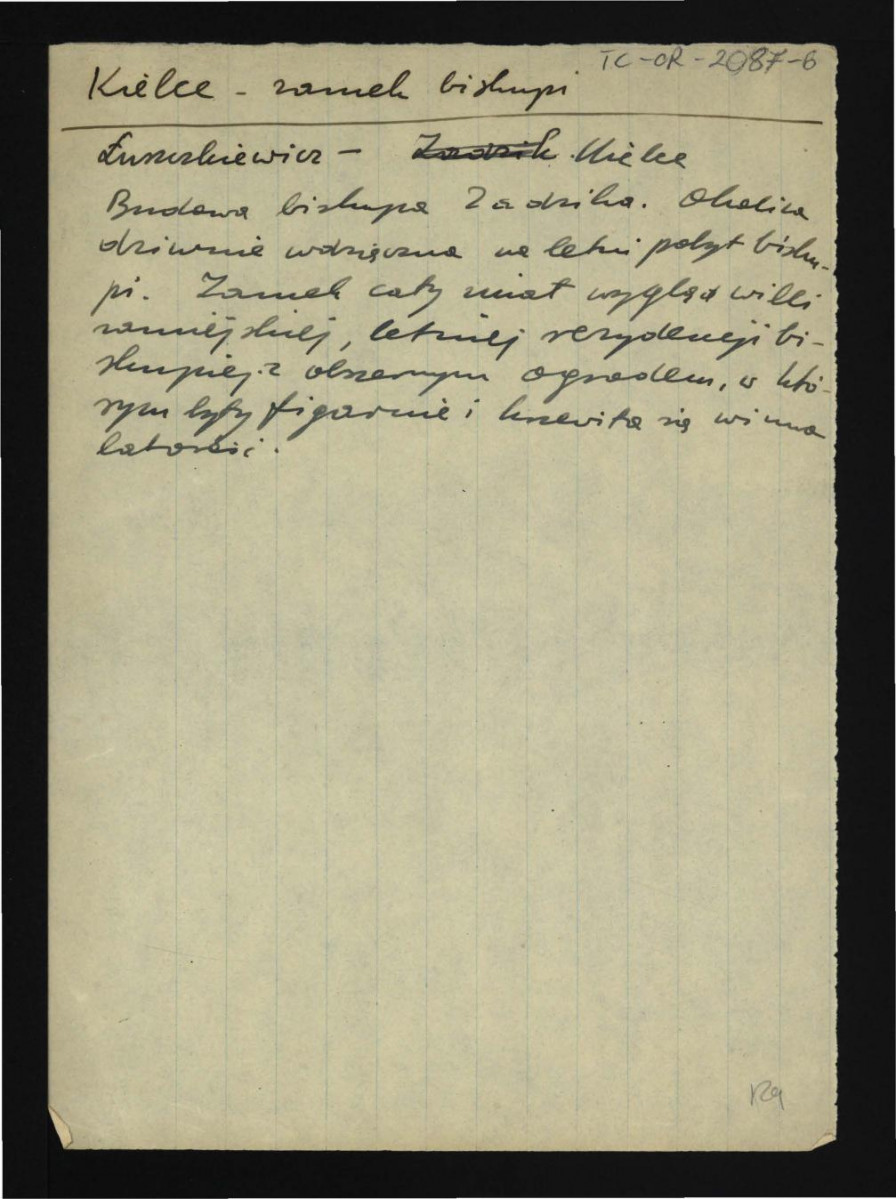 TC-OR-2087-6
Kielce - zamek biskupi
Łuszczkiewicz - Zadzik Kielce
Budowa biskupa Zadzika. Okolica
dziwnie wdzięczna na letni pobyt bisku-
pi. Zamek cały miał wygląd willi
zamiejskiej, letniej rezydencji bi-
skupiej z obszernym ogrodem, w któ-
rym były figarnie i krzewiła się winna
latorośl.